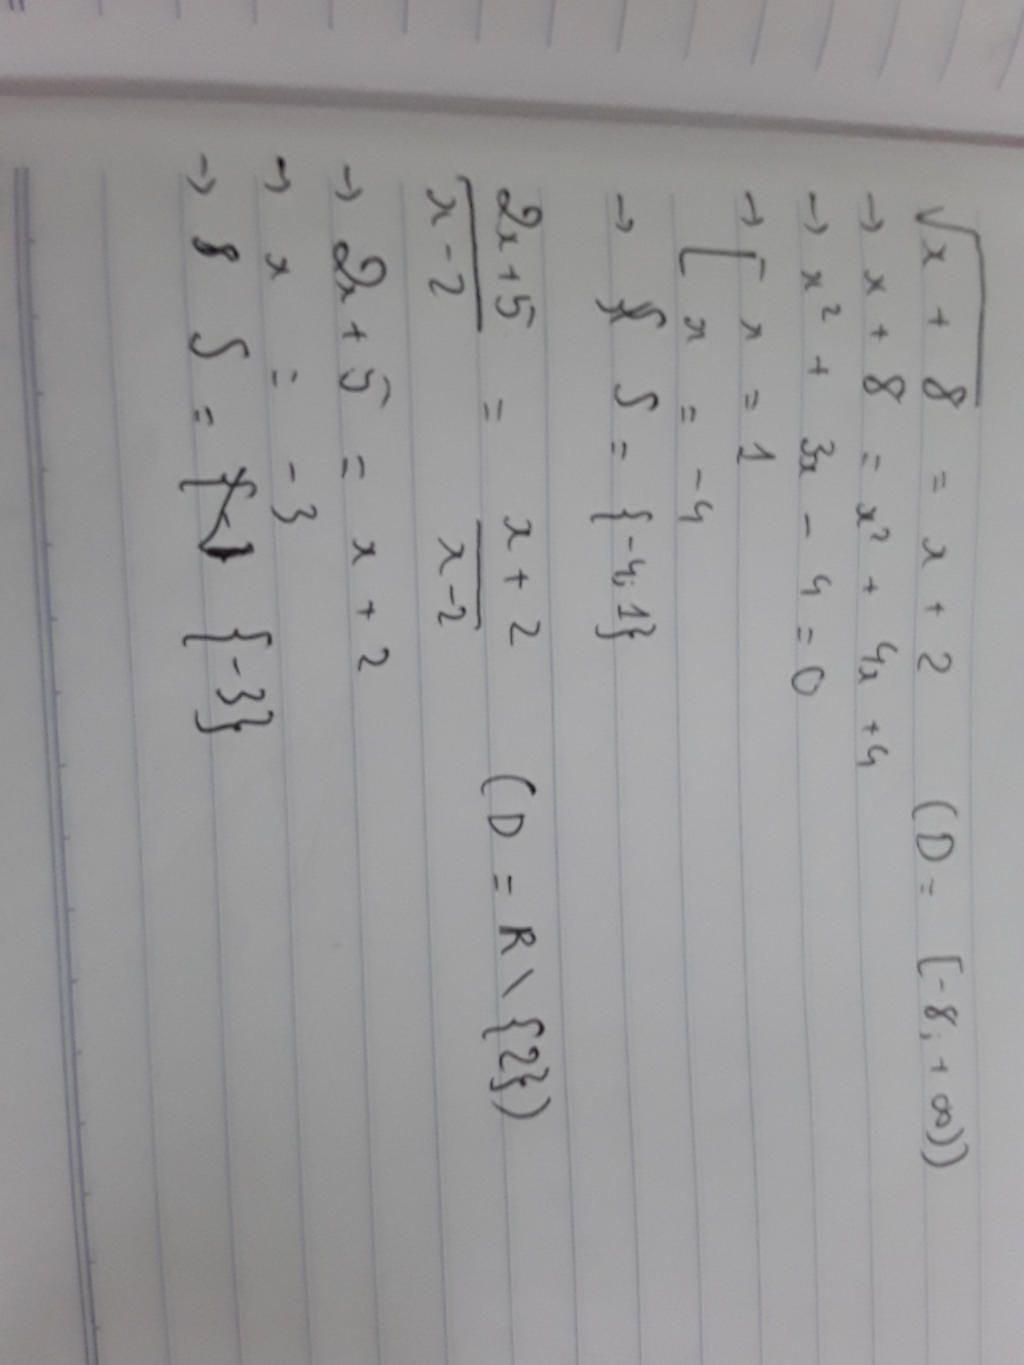 √(x + 8) = x + 2 (D = [-8; +∞))
→ x + 8 = x² + 4x + 4
→ x² + 3x - 4 = 0
→ [ x = 1
[ x = -4
→ S = {-4; 1}
(2x + 5)/(x - 2) = (x + 2)/(x - 2) (D = R \ {2})
→ 2x + 5 = x + 2
→ x = -3
→ S = {-3}